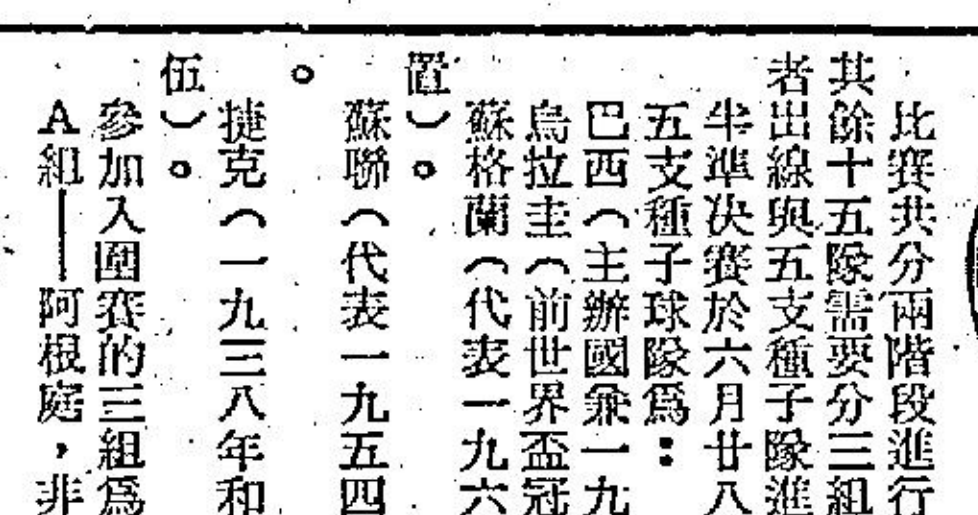 比賽共分兩階段進行
其餘十五隊需要分三組
者出線與五支種子隊進
半準決賽於六月廿八
五支種子球隊爲：
巴西（主辦國兼一九
烏拉圭（前世界盃冠
蘇格蘭（代表一九六
置）。
蘇聯（代表一九五四
。
捷克（一九三八年和
伍）。
參加入圍賽的三組爲
A組——阿根庭，非